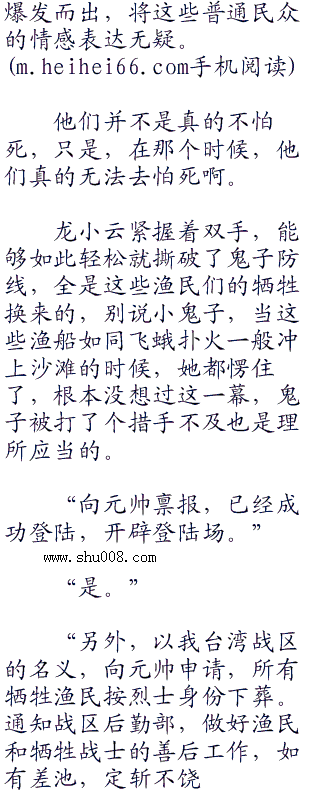 爆发而出，将这些普通民众
的情感表达无疑。
(m.heihei66.com手机阅读)
他们并不是真的不怕
死，只是，在那个时候，他
们真的无法去怕死啊。
龙小云紧握着双手，能
够如此轻松就撕破了鬼子防
线，全是这些渔民们的牺牲
换来的，别说小鬼子，当这
些渔船如同飞蛾扑火一般冲
上沙滩的时候，她都愣住
了，根本没想过这一幕，鬼
子被打了个措手不及也是理
所应当的。
“向元帅禀报，已经成
功登陆，开辟登陆场。”
www.shu008.com
“是。”
“另外，以我台湾战区
的名义，向元帅申请，所有
牺牲渔民按烈士身份下葬。
通知战区后勤部，做好渔民
和牺牲战士的善后工作，如
有差池，定斩不饶